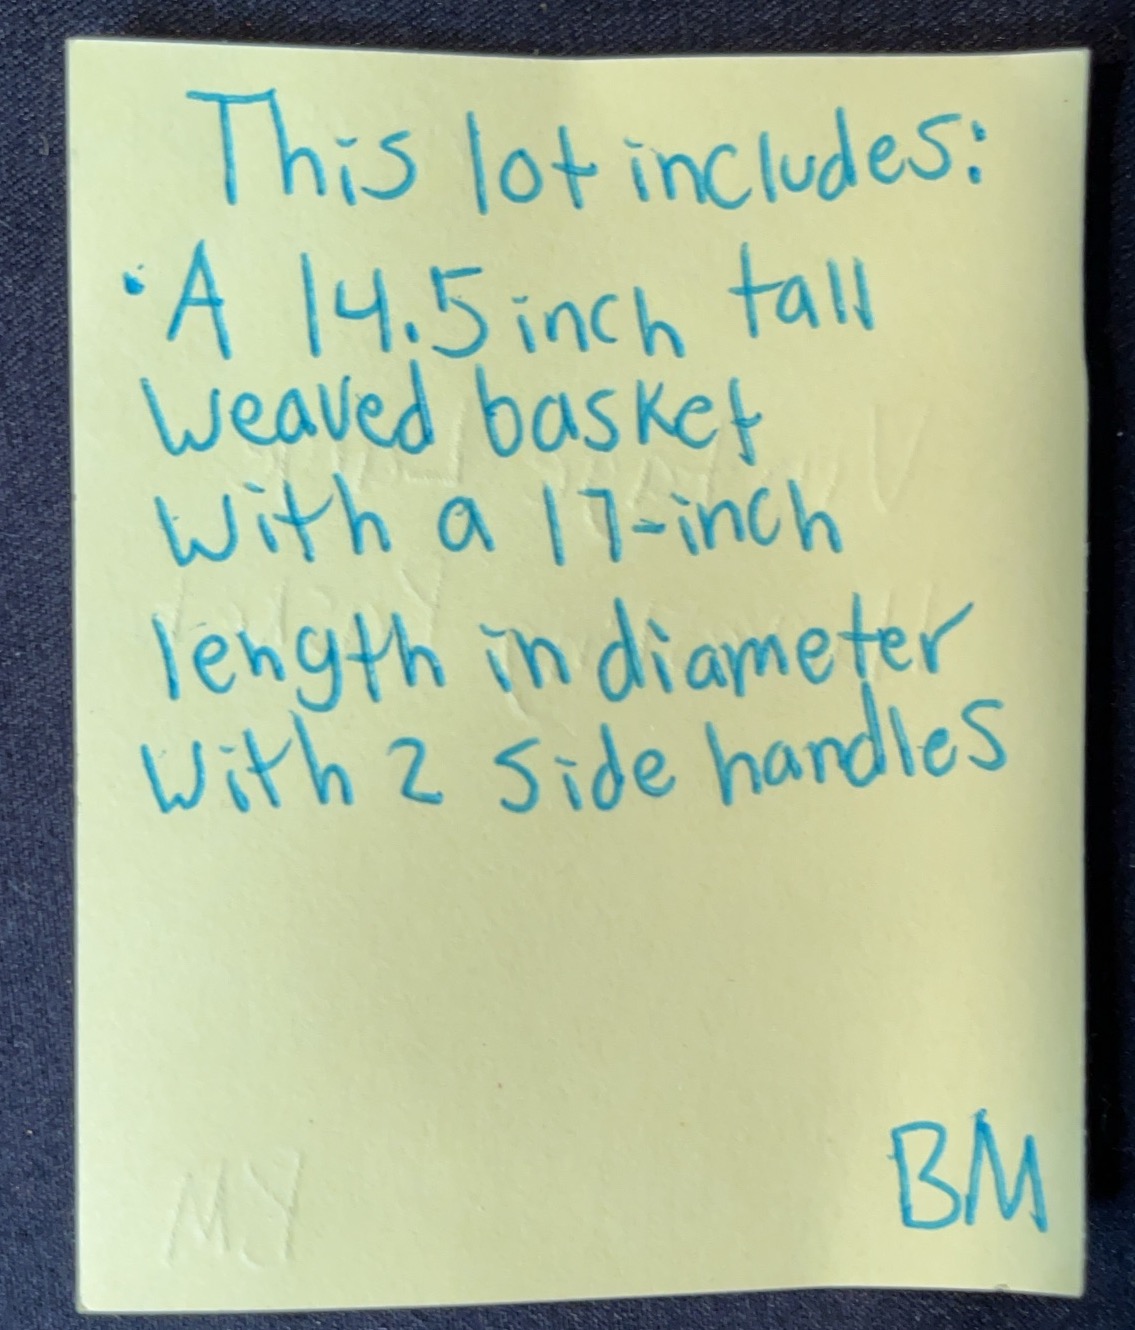 This lot includes:
· A 14.5 inch tall
weaved basket
with a 17-inch
length in diameter
with 2 side handles
BM